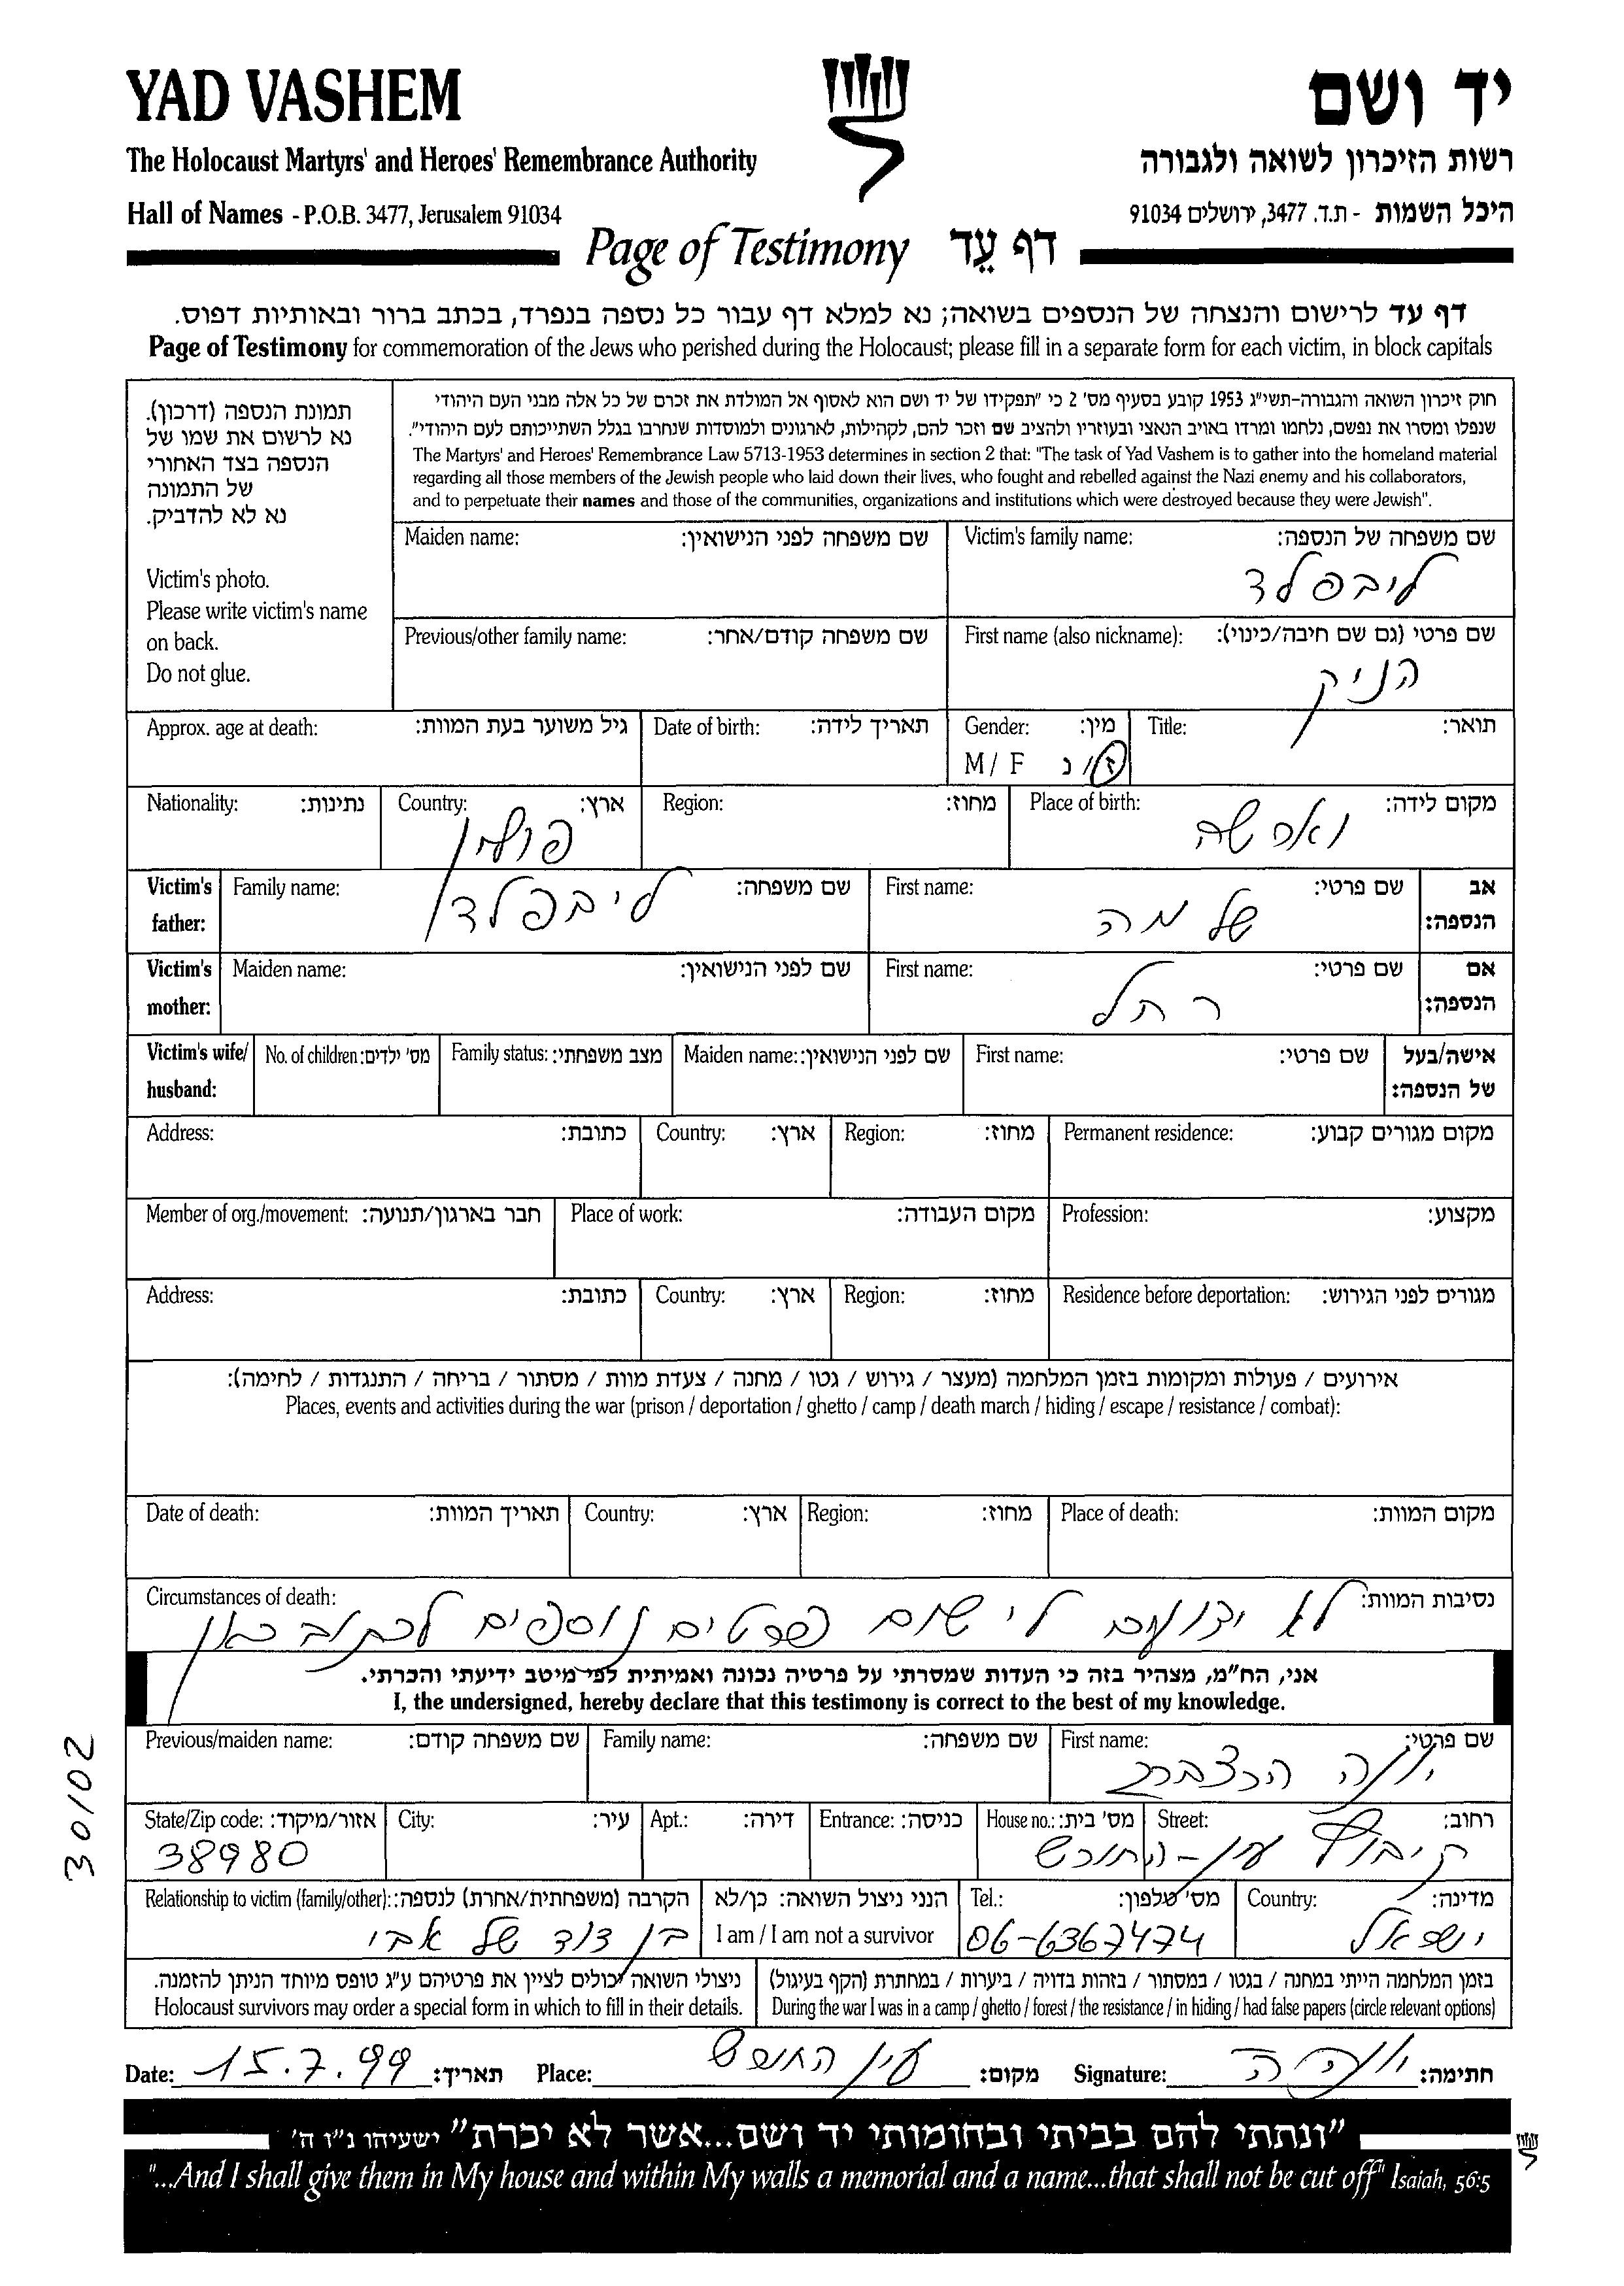 YAD VASHEM
יד ושם
The Holocaust Martyrs' and Heroes' Remembrance Authority
רשות הזיכרון לשואה ולגבורה
Hall of Names - P.O.B. 3477, Jerusalem 91034
היכל השמות - ת.ד. 3477, ירושלים 91034
Page of Testimony דף עֵד
דף עד לרישום והנצחה של הנספים בשואה; נא למלא דף עבור כל נספה בנפרד, בכתב ברור ובאותיות דפוס.
Page of Testimony for commemoration of the Jews who perished during the Holocaust; please fill in a separate form for each victim, in block capitals
תמונת הנספה (דרכון).
נא לרשום את שמו של
הנספה בצד האחורי
של התמונה
נא לא להדביק.
Victim's photo.
Please write victim's name
on back.
Do not glue.
חוק זיכרון השואה והגבורה-תשי"ג 1953 קובע בסעיף מס' 2 כי "תפקידו של יד ושם הוא לאסוף אל המולדת את זכרם של כל אלה מבני העם היהודי
שנפלו ומסרו את נפשם, נלחמו ומרדו באויב הנאצי ובעוזריו ולהציב שם וזכר להם, לקהילות, לארגונים ולמוסדות שנחרבו בגלל השתייכותם לעם היהודי".
The Martyrs' and Heroes' Remembrance Law 5713-1953 determines in section 2 that: "The task of Yad Vashem is to gather into the homeland material
regarding all those members of the Jewish people who laid down their lives, who fought and rebelled against the Nazi enemy and his collaborators,
and to perpetuate their names and those of the communities, organizations and institutions which were destroyed because they were Jewish".
Maiden name: שם משפחה לפני הנישואין: Victim's family name: שם משפחה של הנספה:
ליבפלד
Previous/other family name: שם משפחה קודם/אחר: First name (also nickname): שם פרטי (גם שם חיבה/כינוי):
הניק
Approx. age at death: גיל משוער בעת המוות: Date of birth: תאריך לידה: Gender: מין: Title: תואר:
M / F ז / נ
Nationality: נתינות: Country: ארץ: Region: מחוז: Place of birth: מקום לידה:
פולין ווארשה
Victim's father: Family name: שם משפחה: First name: שם פרטי: אב הנספה:
ליבפלד שלמה
Victim's mother: Maiden name: שם לפני הנישואין: First name: שם פרטי: אם הנספה:
רחל
Victim's wife/ husband: No. of children: מס' ילדים: Family status: מצב משפחתי: Maiden name: שם לפני הנישואין: First name: שם פרטי: אישה/בעל של הנספה:
Address: כתובת: Country: ארץ: Region: מחוז: Permanent residence: מקום מגורים קבוע:
Member of org./movement: חבר בארגון/תנועה: Place of work: מקום העבודה: Profession: מקצוע:
Address: כתובת: Country: ארץ: Region: מחוז: Residence before deportation: מגורים לפני הגירוש:
אירועים / פעולות ומקומות בזמן המלחמה (מעצר / גירוש / גטו / מחנה / צעדת מוות / מסתור / בריחה / התנגדות / לחימה):
Places, events and activities during the war (prison / deportation / ghetto / camp / death march / hiding / escape / resistance / combat):
Date of death: תאריך המוות: Country: ארץ: Region: מחוז: Place of death: מקום המוות:
Circumstances of death: נסיבות המוות:
לא ידועים לי שום פרטים נוספים לכתוב כאן
אני, הח"מ, מצהיר בזה כי העדות שמסרתי על פרטיה נכונה ואמיתית לפי מיטב ידיעתי והכרתי.
I, the undersigned, hereby declare that this testimony is correct to the best of my knowledge.
Previous/maiden name: שם משפחה קודם: Family name: שם משפחה: First name: שם פרטי:
יונה
State/Zip code: אזור/מיקוד: City: עיר: Apt.: דירה: Entrance: כניסה: House no.: מס' בית: Street: רחוב:
38980 קיבוץ עין-החורש
Relationship to victim (family/other): הקרבה (משפחתית/אחרת) לנספה: הנני ניצול השואה: כן/לא Tel.: מס' טלפון: Country: מדינה:
בן דוד של אבי I am / I am not a survivor 06-6367474 ישראל
ניצולי השואה יכולים לציין את פרטיהם ע"ג טופס מיוחד הניתן להזמנה. בזמן המלחמה הייתי במחנה / בגטו / במסתור / בזהות בדויה / ביערות / במחתרת (הקף בעיגול)
Holocaust survivors may order a special form in which to fill in their details. During the war I was in a camp / ghetto / forest / the resistance / in hiding / had false papers (circle relevant options)
Date: 15.7.99 תאריך: Place: עין החורש מקום: Signature: יונה ה חתימה:
"ונתתי להם בביתי ובחומותי יד ושם...אשר לא יכרת" ישעיהו נ"ו ה'
"...And I shall give them in My house and within My walls a memorial and a name...that shall not be cut off" Isaiah, 56:5
30102